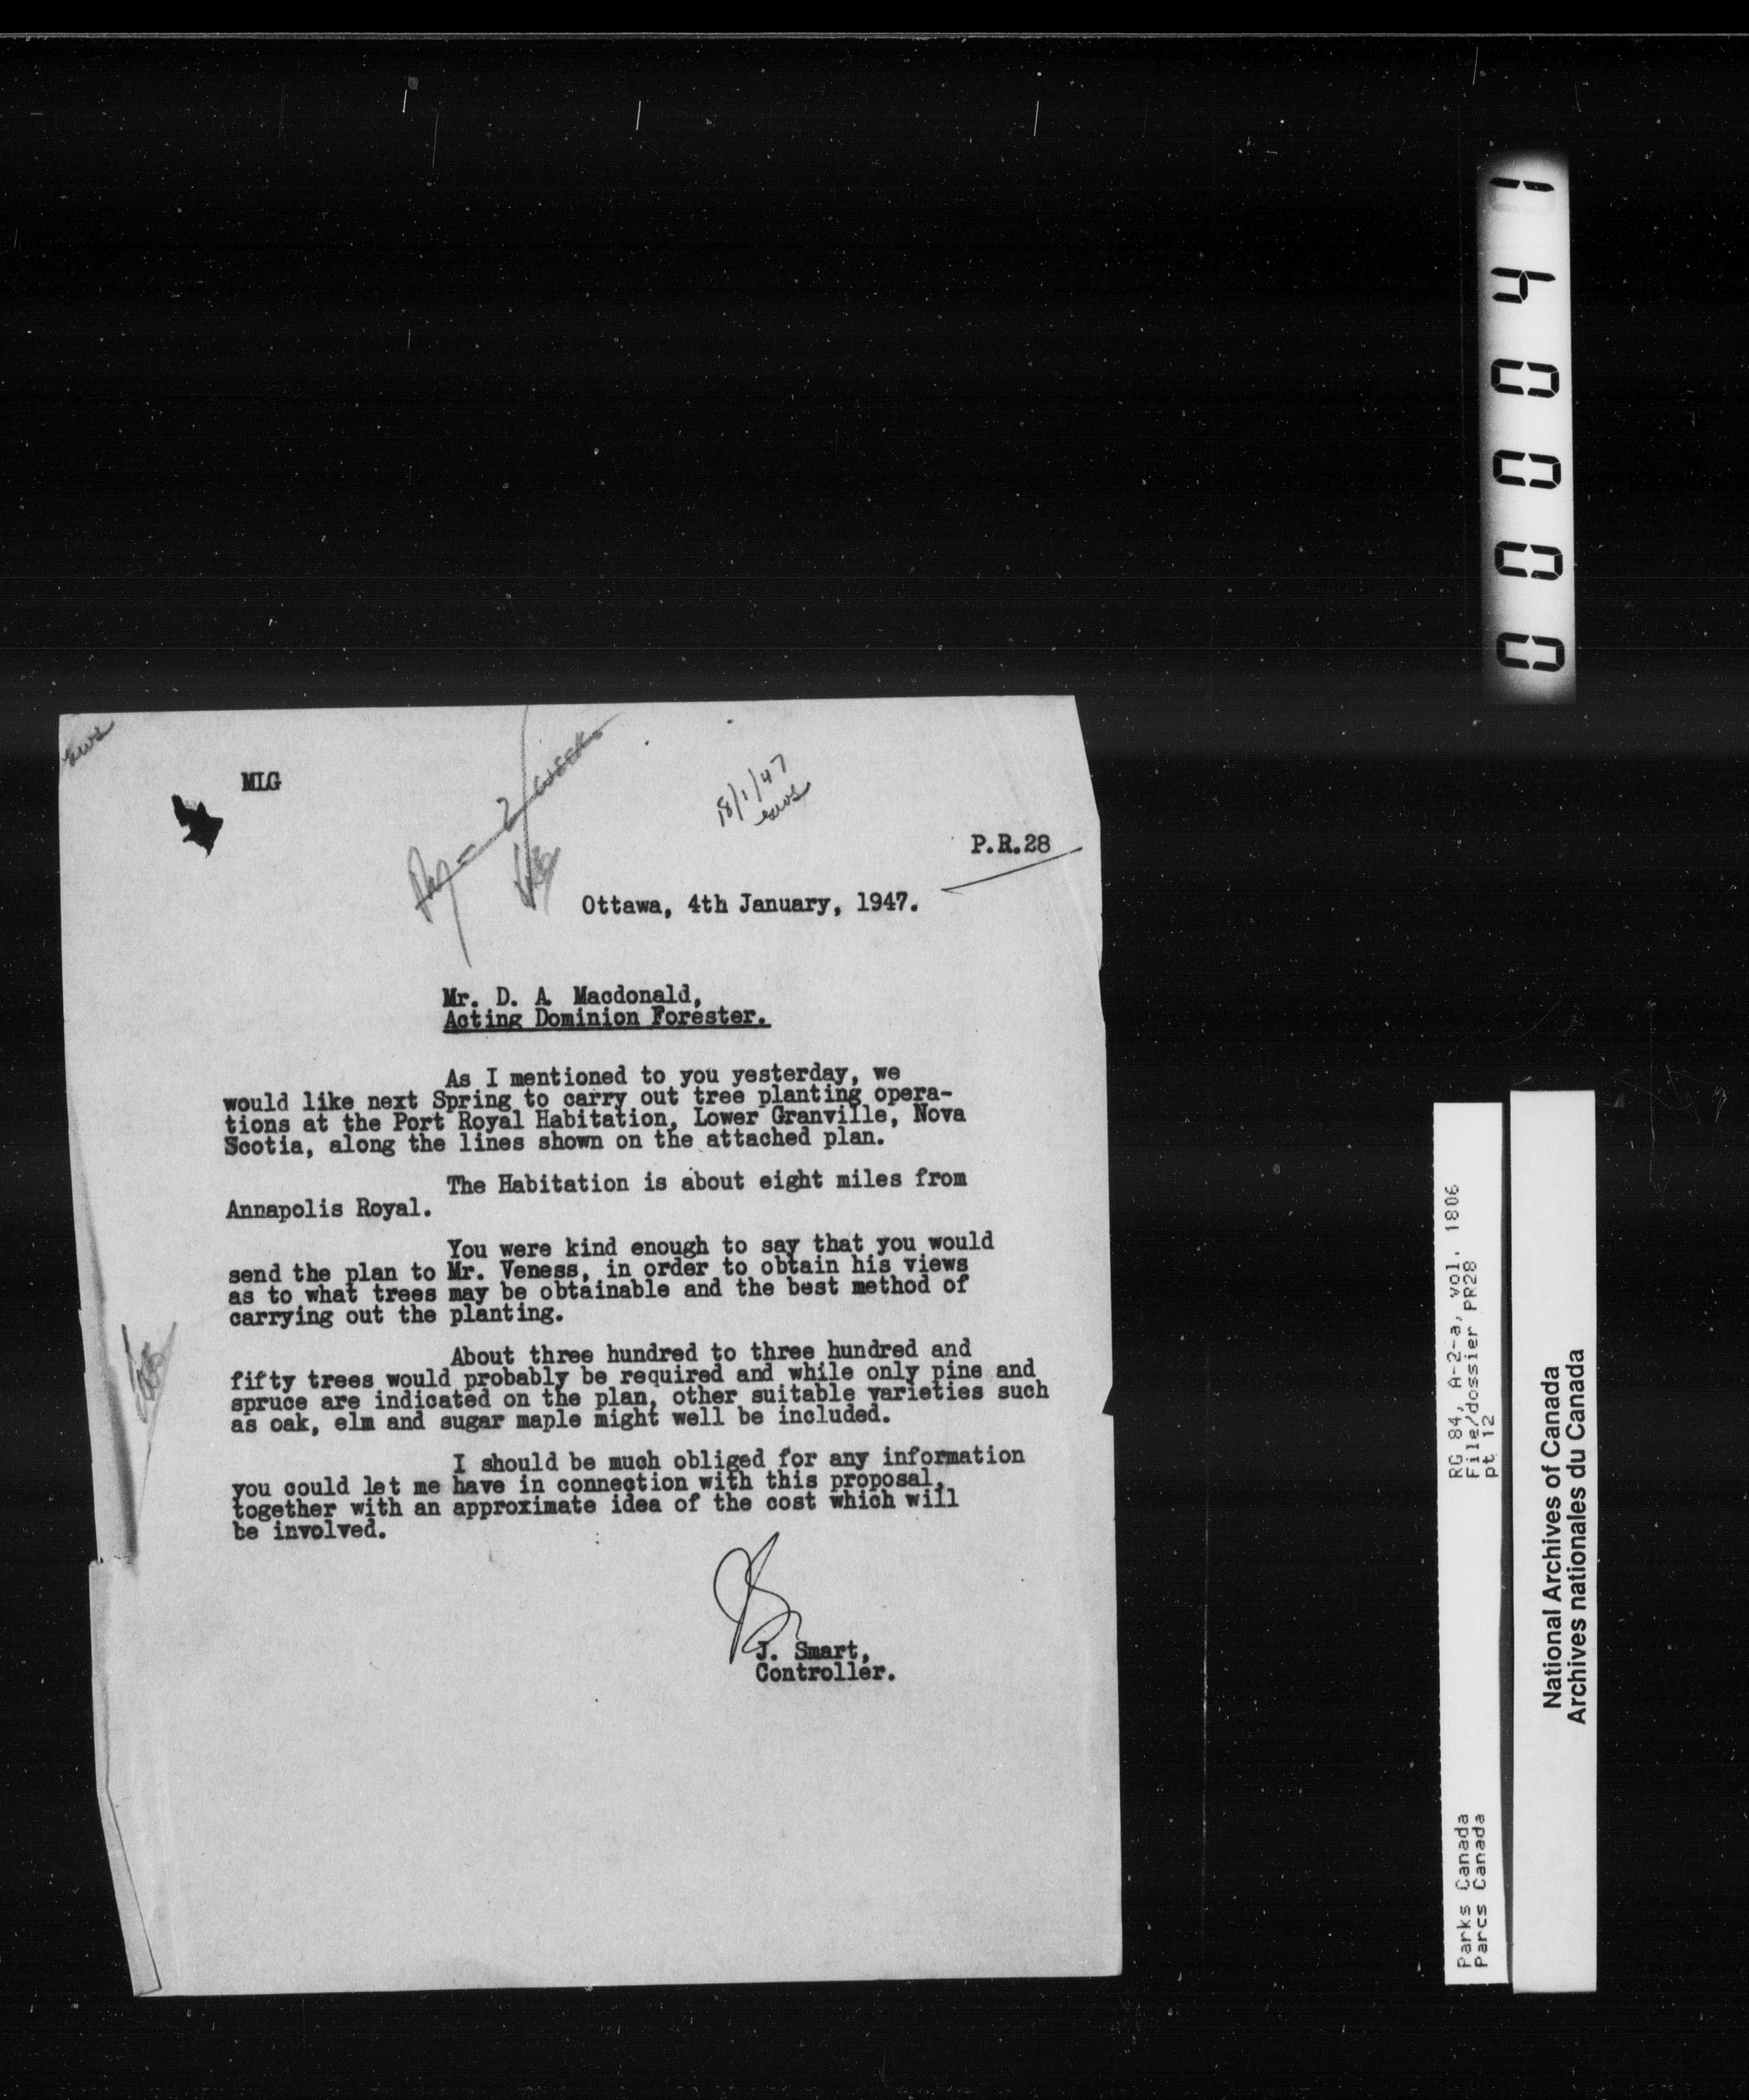 MLG
2 week
18/1/47
P.R.28
Ottawa, 4th January, 1947.
Mr. D. A. Macdonald,
Acting Dominion Forester.
As I mentioned to you yesterday, we
would like next Spring to carry out tree planting opera-
tions at the Port Royal Habitation, Lower Granville, Nova
Scotia, along the lines shown on the attached plan.
The Habitation is about eight miles from
Annapolis Royal.
You were kind enough to say that you would
send the plan to Mr. Veness, in order to obtain his views
as to what trees may be obtainable and the best method of
carrying out the planting.
About three hundred to three hundred and
fifty trees would probably be required and while only pine and
spruce are indicated on the plan, other suitable varieties such
as oak, elm and sugar maple might well be included.
I should be much obliged for any information
you could let me have in connection with this proposal,
together with an approximate idea of the cost which will
be involved.
J. Smart,
Controller.
000041
RG 84, A-2-a, vol. 1806
File/dossier PR28
pt 12
Parks Canada
Parcs Canada
National Archives of Canada
Archives nationales du Canada